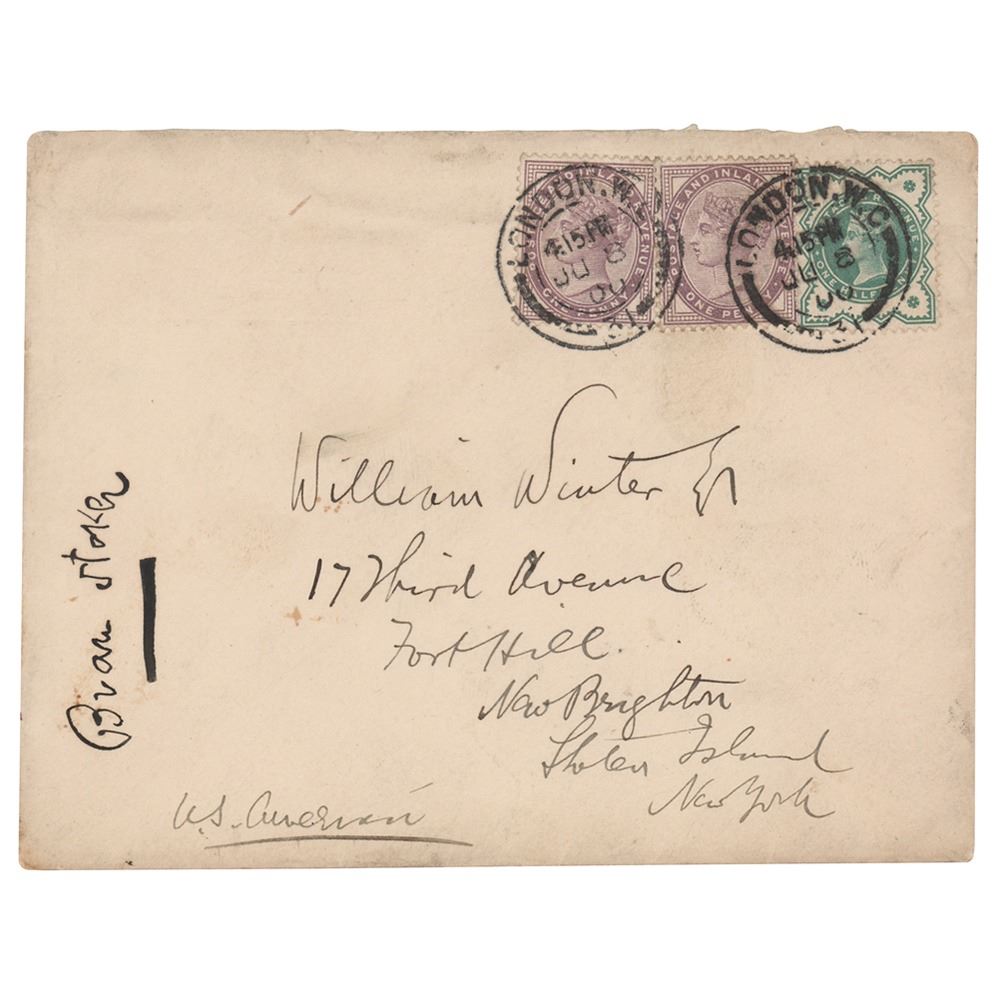 LONDON. W.C.
4.15 PM
JU 8
00
31
LONDON. W.C.
4.15 PM
JU 8
00
31
POSTAGE AND INLAND REVENUE
ONE PENNY
POSTAGE AND INLAND REVENUE
ONE PENNY
REVENUE
ONE HALFPENNY
William Winter Esq
17 Third Avenue
Fort Hill.
New Brighton
Staten Island
New York
U.S. America
Bram Stoker